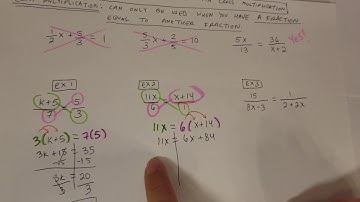 CROSS MULTIPLICATION: CAN ONLY BE USED WHEN YOU HAVE A FRACTION
EQUAL TO ANOTHER FRACTION.
1/2 x + 5/3 = 1
5/3 x + 2/5 = 10
5x/13 = 36/x+2 Yes!
EX 1
EX 2
EX 3
k+5/7 = 5/3
11x/6 = x+14/1
15/8x-3 = 1/2+2x
3(k+5) = 7(5)
11x = 6(x+14)
3k+15 = 35
11x = 6x+84
-15 -15
3k = 20
3 3